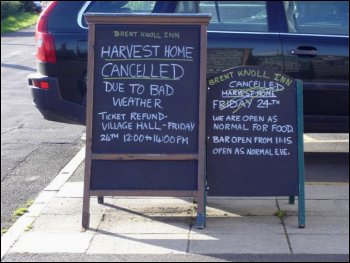 BRENT KNOLL INN
HARVEST HOME
CANCELLED
DUE TO BAD
WEATHER.
TICKET REFUND-
VILLAGE HALL - FRIDAY
24TH 12:00 to 14:00 PM
BRENT KNOLL INN
CANCELLED
HARVEST HOME
FRIDAY 24TH
WE ARE OPEN AS
NORMAL FOR FOOD.
BAR OPEN FROM 11:15
OPEN AS NORMAL EVE.